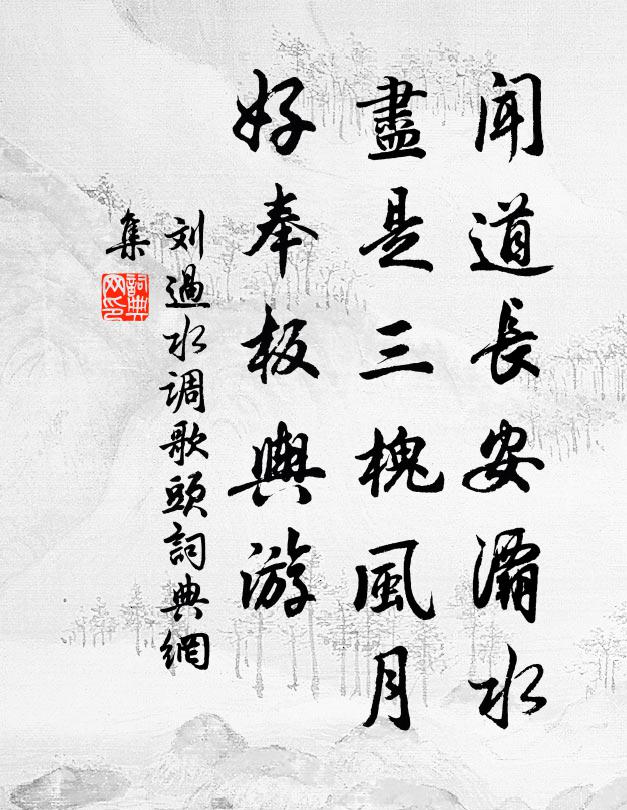 聞道長安灞水
盡是三槐風月
好奉板輿游
刘過水调歌頭詞典網
集
詞典
网印